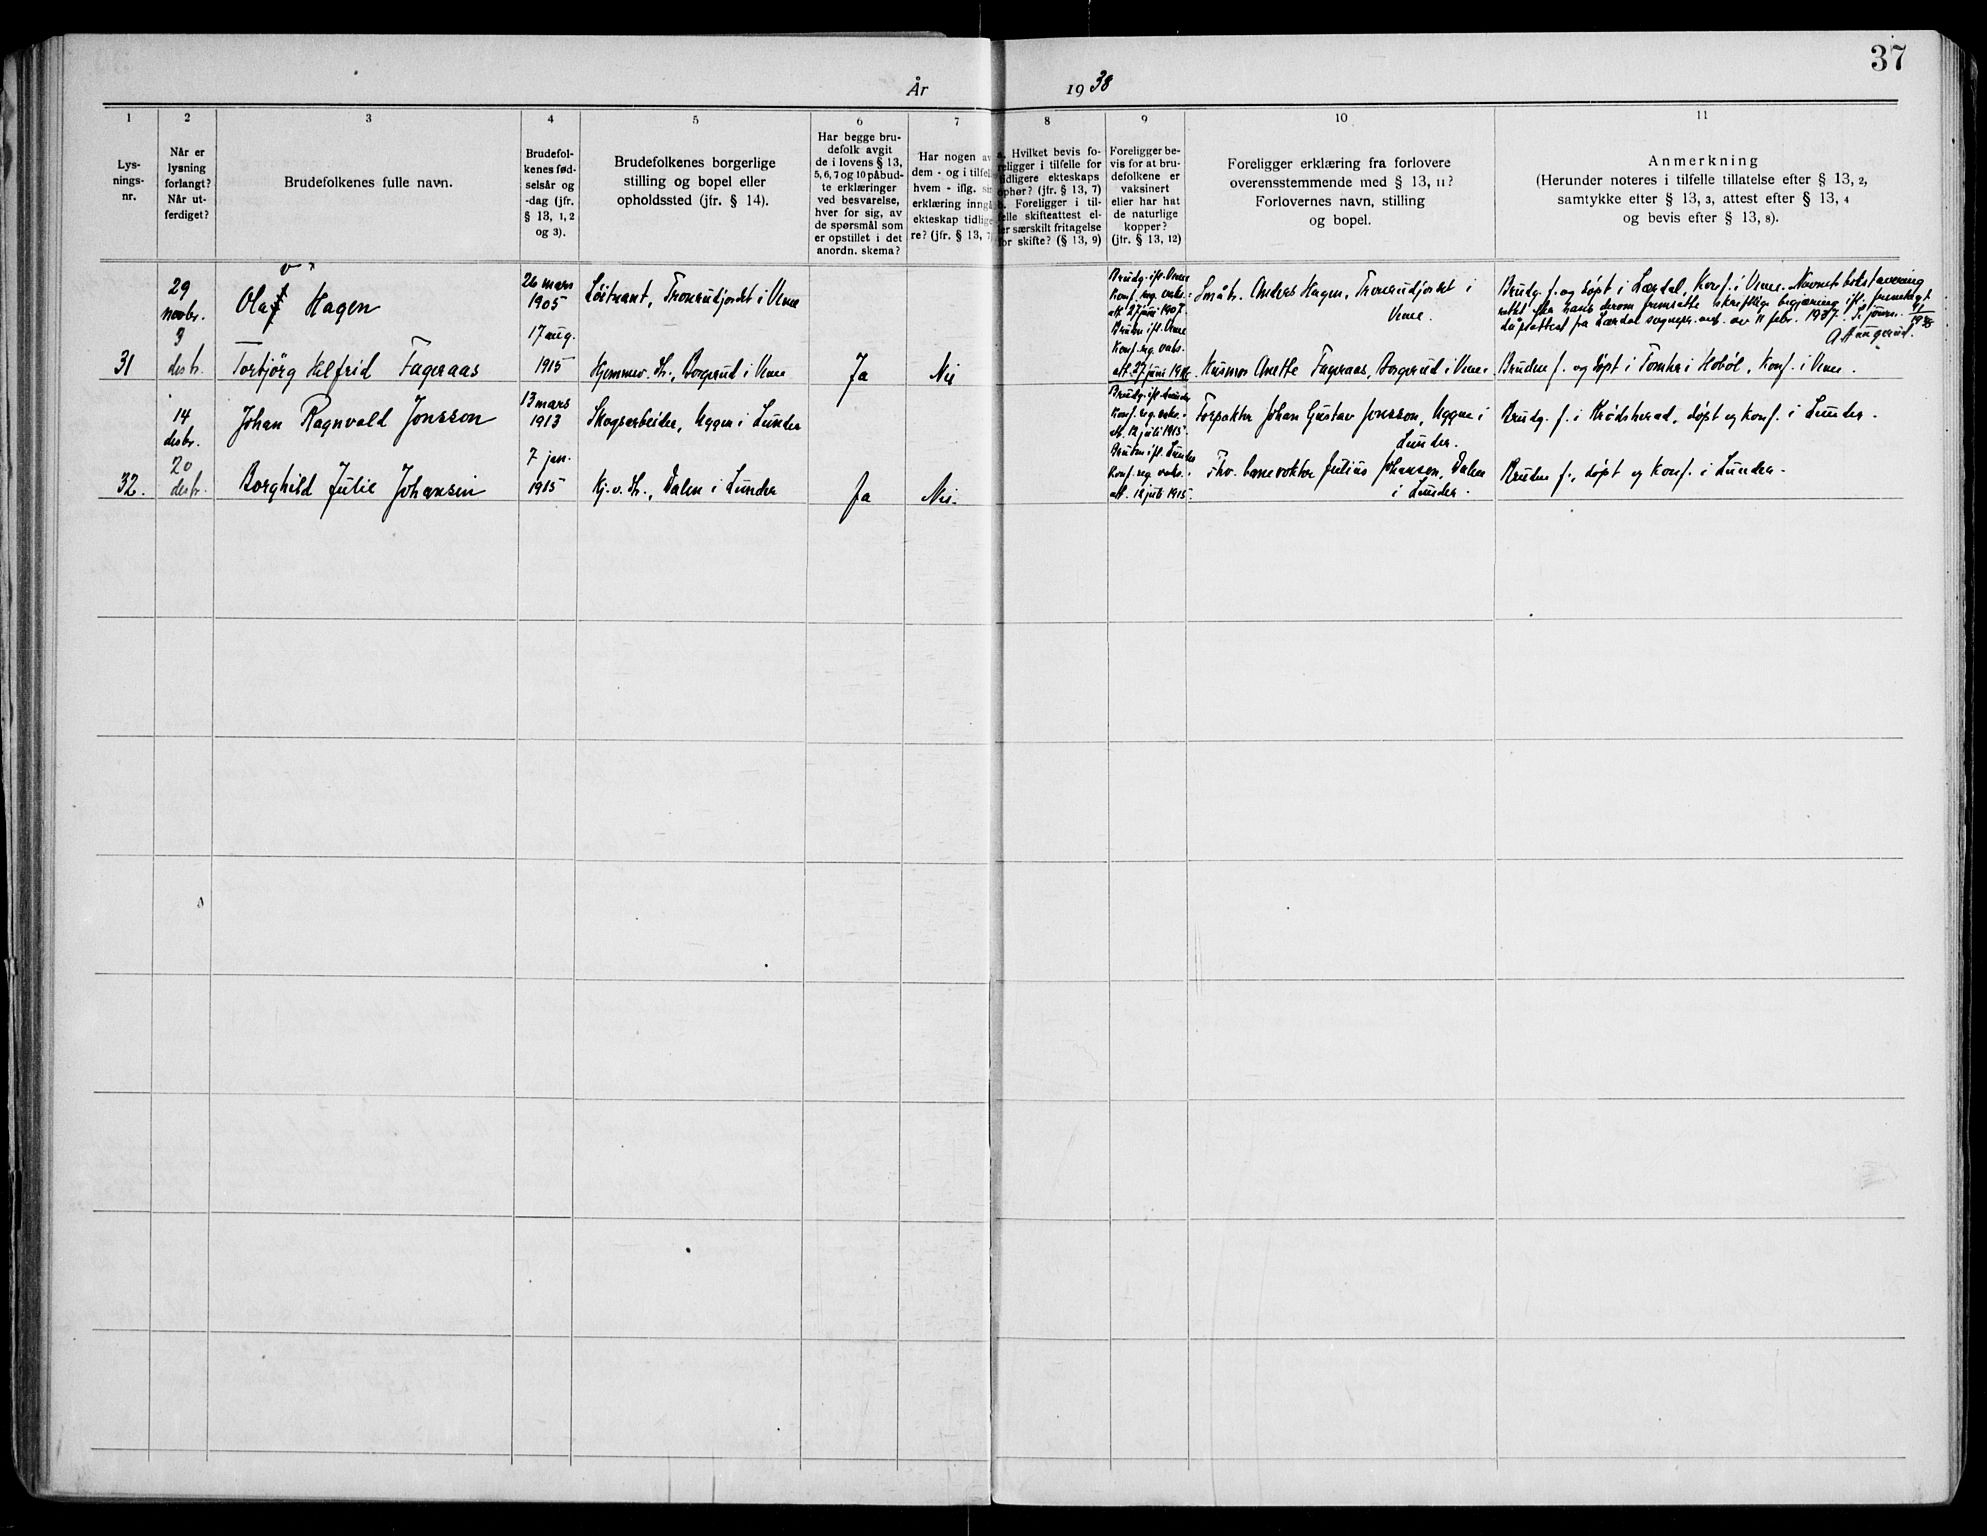 37
År 1938
1 2 3 4 5 6 7 8 9 10 11
Lys-
nings-
nr.
Når er
lysning
forlangt?
Når ut-
ferdiget?
Brudefolkenes fulle navn.
Brudefol-
kenes fød-
selsår og
-dag (jfr.
§ 13, 1, 2
og 3).
Brudefolkenes borgerlige
stilling og bopel eller
opholdssted (jfr. § 14).
Har begge bru-
defolk avgit
de i lovens § 13,
5, 6, 7 og 10 påbud-
te erklæringer
ved besvarelse,
hver for sig, av
de spørsmål som
er opstillet i det
anordn. skema?
Har nogen av
dem - og i tilfelle
hvem - iflg. sin
erklæring inngå
ekteskap tidlige
re? (jfr. § 13, 7)
a. Hvilket bevis fo-
religger i tilfelle for
tidligere ekteskaps
ophør? (jfr. § 13, 7)
b. Foreligger i til-
felle skifteattest el-
ler særskilt fritagelse
for skifte? (§ 13, 9)
Foreligger be-
vis for at bru-
defolkene er
vaksinert
eller har hat
de naturlige
kopper?
(jfr. § 13, 12)
Foreligger erklæring fra forlovere
overensstemmende med § 13, 11?
Forlovernes navn, stilling
og bopel.
Anmerkning
(Herunder noteres i tilfelle tillatelse efter § 13, 2,
samtykke efter § 13, 3, attest efter § 13, 4
og bevis efter § 13, 8).
29
novbr.
Olaf Hagen
v
26 mars
1905
Løitnant, Tronrudjordet i Veme
Brudg. ifl. Veme
Konf. reg. vaks.:
att. 27 juni 1907.
Småbr. Anders Hagen, Tronrudjordet i
Veme.
Brudg. f. og døpt i Lærdal, Konf. i Veme. Navnets bokstavering
rettet efter hans derom fremsatte skriftlige begjæring ifl. fremlagt
dåpsattest fra Lærdal sognepr. emb. av 11 febr. 1937. Se journ.
A Haugerud.
31
3
desbr.
Torbjörg Helfrid Fageraas
17 aug.
1915
Hjemmev. dtr., Borgerud i Veme
Ja
Nei
Bruden ifl. Veme
Konf. reg. vaks.
att. 27 juni
Husmor Anette Fageraas, Borgerud i Veme.
Bruden f. og døpt i Tomter i Hobøl, Konf. i Veme.
14
desbr.
Johan Ragnvald Jonsson
13 mars
1913
Skogsarbeider, Uggen i Lunder
Brudg. ifl. Lunder
Konf. reg. vaks.:
att. 12 juli 1915.
Forpakter Johan Gustav Jonsson, Uggen i
Lunder.
Brudg. f. i Krødsherad, døpt og konf. i Lunder.
32.
20
desbr.
Borghild Julie Johansen
7 jan.
1915
Hj. v. dtr., Dalen i Lunder
Ja
Nei.
Bruden ifl. Lunder
Konf. reg. vaks.:
att. 12 juli 1915.
Fhv. banevokter Julius Johansen, Dalen
i Lunder.
Bruden f., døpt og konf. i Lunder.